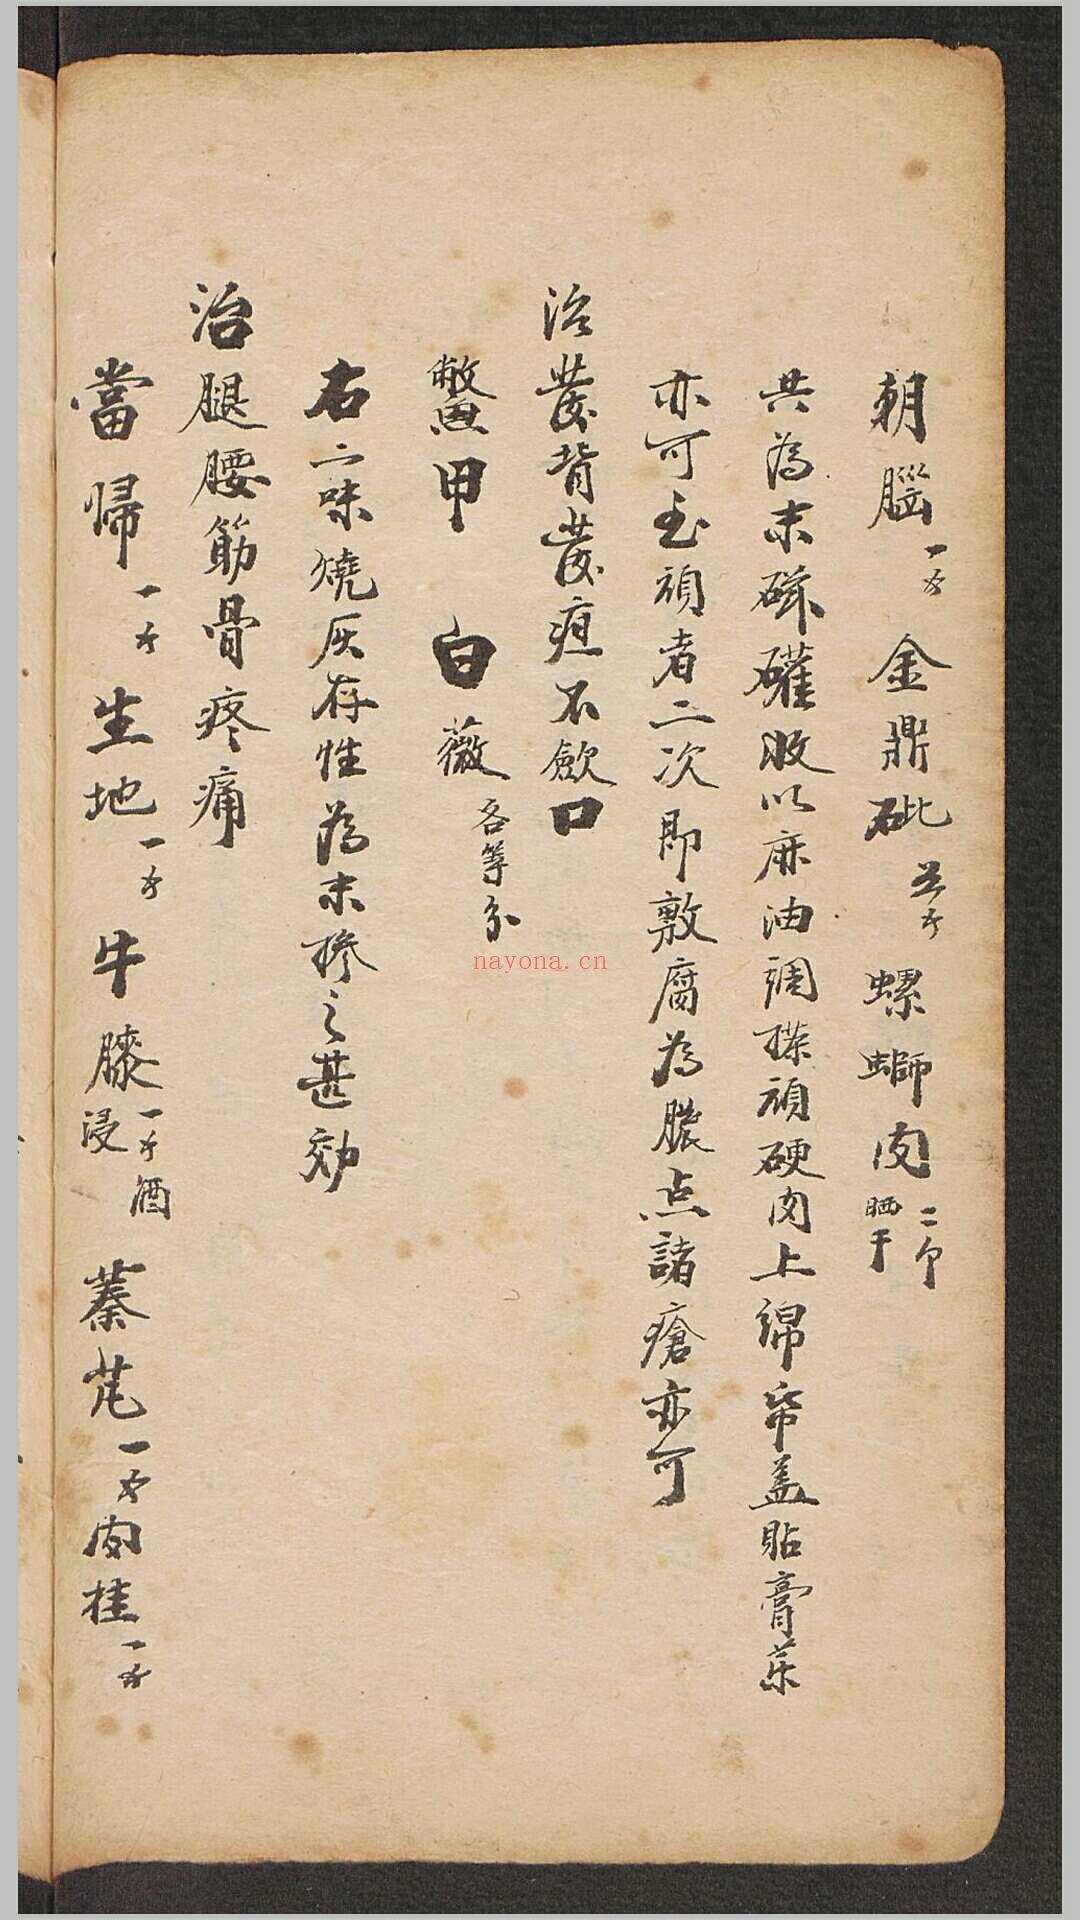 朝腦一分 金鼎砒五分 螺螄肉二个晒干
共為末磁礶收以麻油調搽頑硬肉上綿帋盖貼膏藥
亦可至頑者二次即敷腐為膿点諸瘡亦可
治發背發疽不歛口
鱉甲 白薇各等分
右二味燒灰存性為末摻之甚効
治腿腰筋骨疼痛
當歸一錢 生地一錢 牛膝一錢酒浸 蓁芃一分 肉桂一錢
nayona.cn